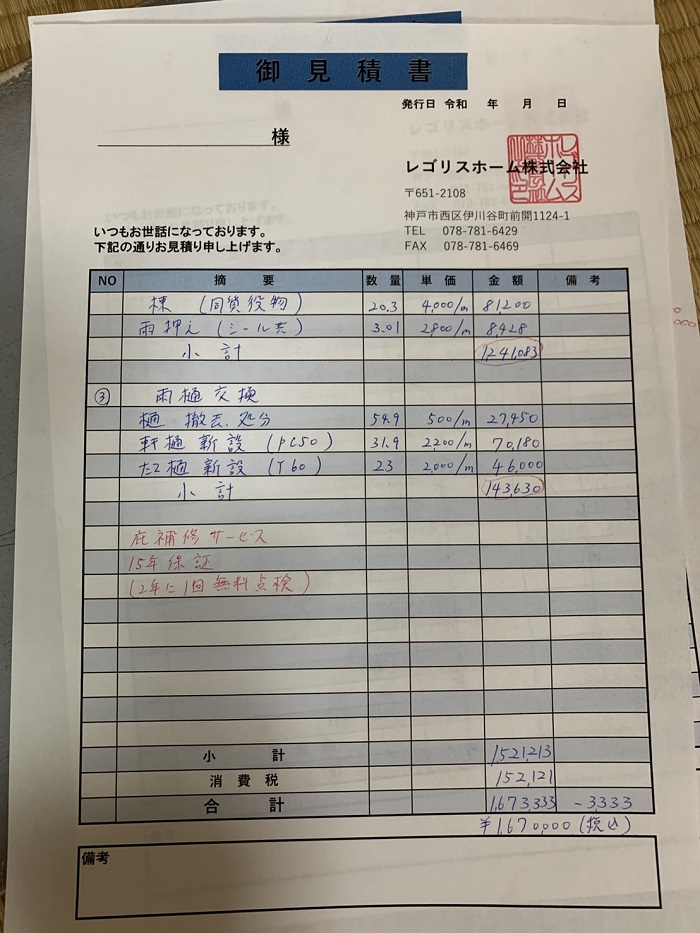 御見積書
発行日 令和 年 月 日
様
レゴリスホーム株式会社
〒651-2108
神戸市西区伊川谷町前開1124-1
TEL 078-781-6429
FAX 078-781-6469
いつもお世話になっております。
下記の通りお見積り申し上げます。
NO 摘要 数量 単価 金額 備考
棟 (同質役物) 20.3 4,000/m 81,200
雨押え (シール共) 3.01 2,800/m 8,428
小計 1,241,083
③ 雨樋交換
樋 撤去.処分 54.9 500/m 27,450
軒樋新設 (PC50) 31.9 2,200/m 70,180
たて樋新設 (T60) 23 2,000/m 46,000
小計 143,630
庇補修サービス
15年保証
(2年に1回無料点検)
小計 1,521,213
消費税 152,121
合計 1,673,333 -3,333
¥1,670,000 (税込)
備考